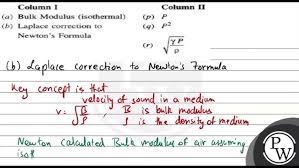 Column I Column II
(a) Bulk Modulus (isothermal) (p) P
(b) Laplace correction to (q) P²
Newton's Formula
(r) √(γP/ρ)
(b) Laplace correction to Newton's Formula
Key concept is that
velocity of sound in a medium
v = √(B/ρ) , B is bulk modulus
ρ is the density of medium
Newton calculated Bulk modulus of air assuming
isoth
PW